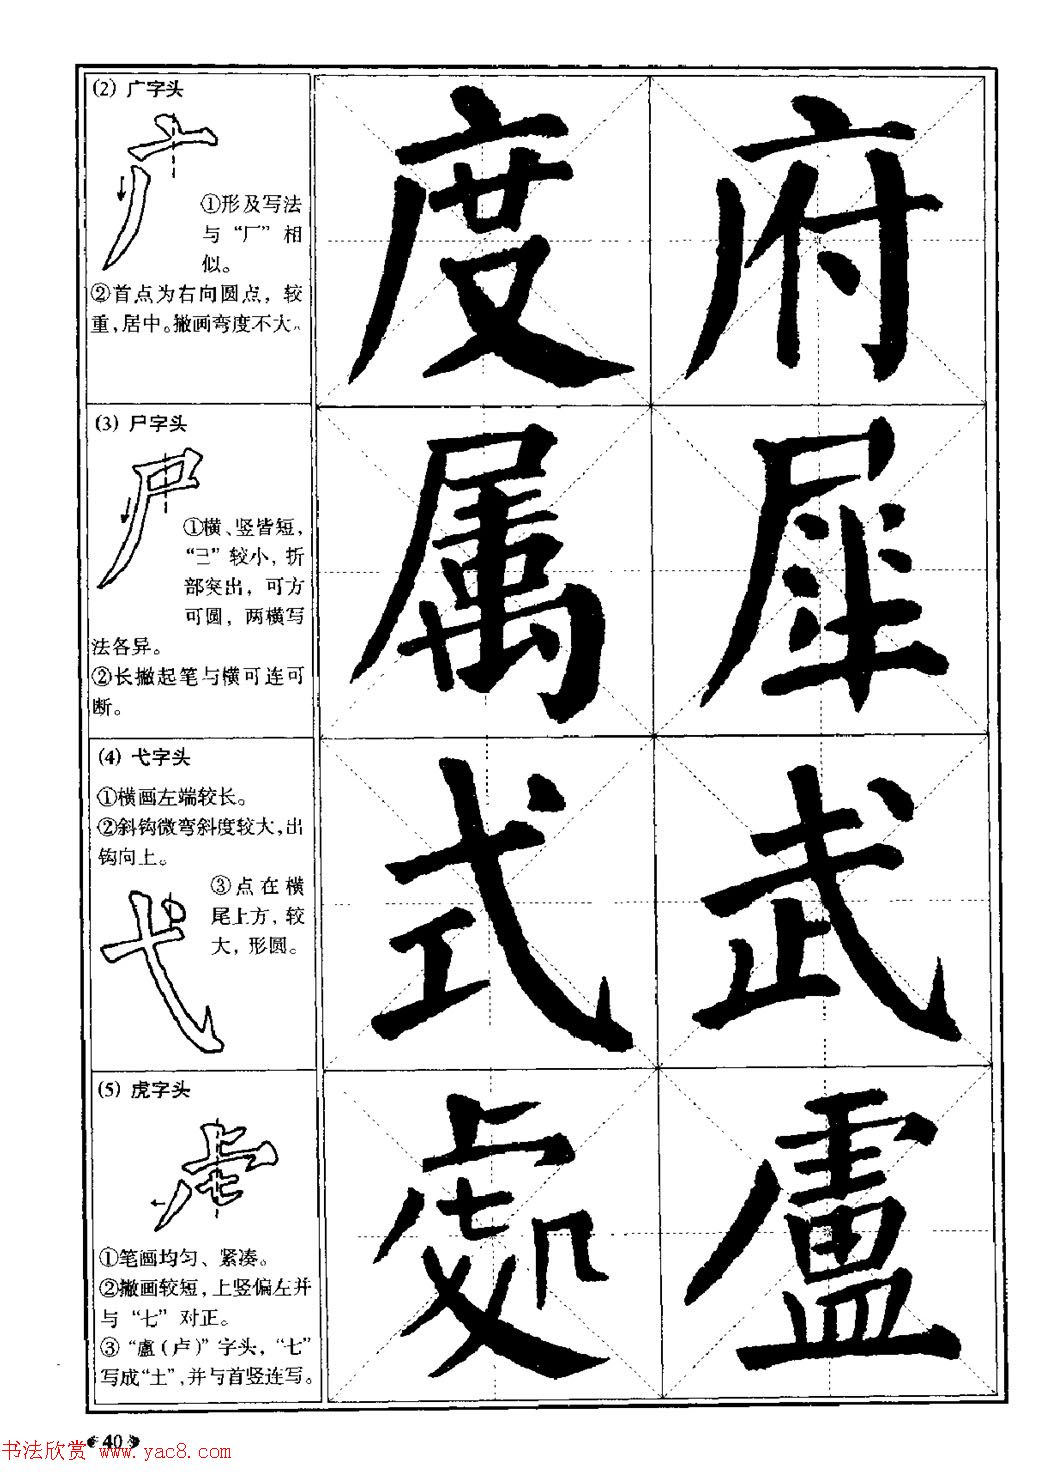 (2) 广字头
①形及写法
与“厂”相
似。
②首点为右向圆点，较
重，居中。撇画弯度不大。
度 府
(3) 尸字头
①横、竖皆短，
“コ”较小，折
部突出，可方
可圆，两横写
法各异。
②长撇起笔与横可连可
断。
属 犀
(4) 弋字头
①横画左端较长。
②斜钩微弯斜度较大，出
钩向上。
③点在横
尾上方，较
大，形圆。
式 武
(5) 虎字头
①笔画均匀、紧凑。
②撇画较短，上竖偏左并
与“七”对正。
③“盧(卢)”字头，“七”
写成“土”，并与首竖连写。
處 盧
40
书法欣赏 www.yac8.com